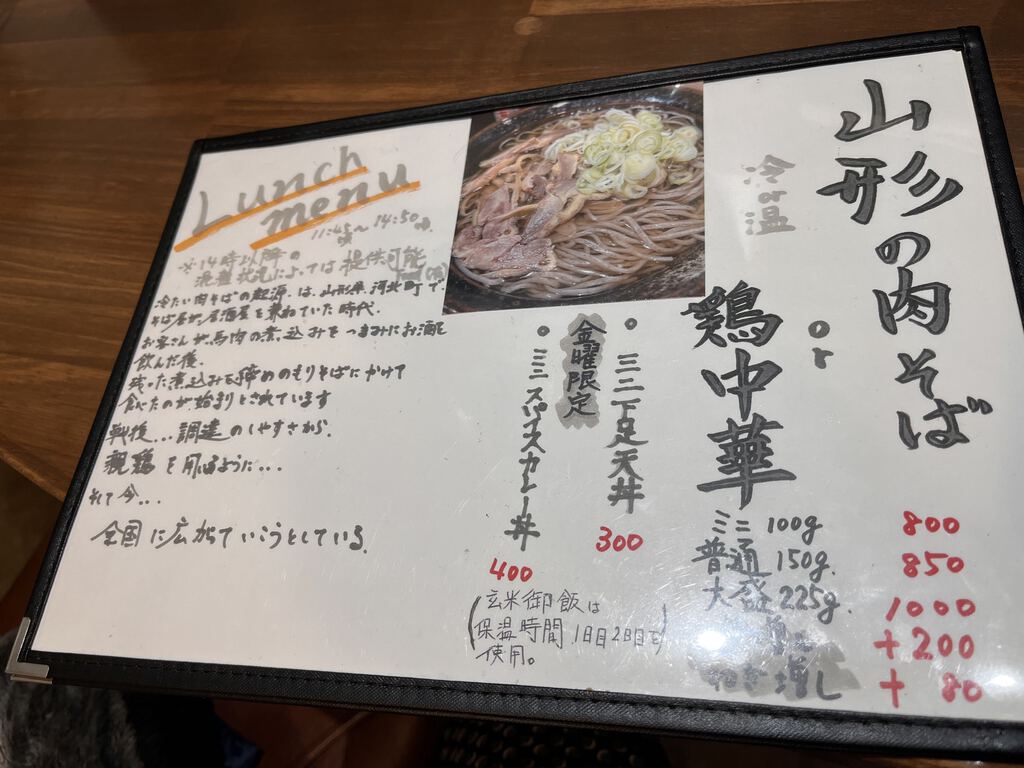 山形の肉そば
冷or温
or
鶏中華
ミニ 100g 800
普通 150g. 850
大盛 225g. 1000
+200
ねぎ増し + 80
。ミニ下足天丼
300
金曜限定
。ミニスパイスカレー丼
400
(玄米御飯は
保温時間1日2日目を
使用。)
Lunch
menu
11:45頃〜14:50頃
※14時以降の
混雑状況によっては提供可能
冷たい肉そばの起源は、山形県河北町で
そば屋が居酒屋を兼ねていた時代。
お客さんが馬肉の煮込みをつまみにお酒を
飲んだ後、
残った煮込みを締めのもりそばにかけて
食べたのが始まりとされています
戦後...調達のしやすさから、
親鶏を用いるように...
そして今...
全国に広がっていこうとしている。